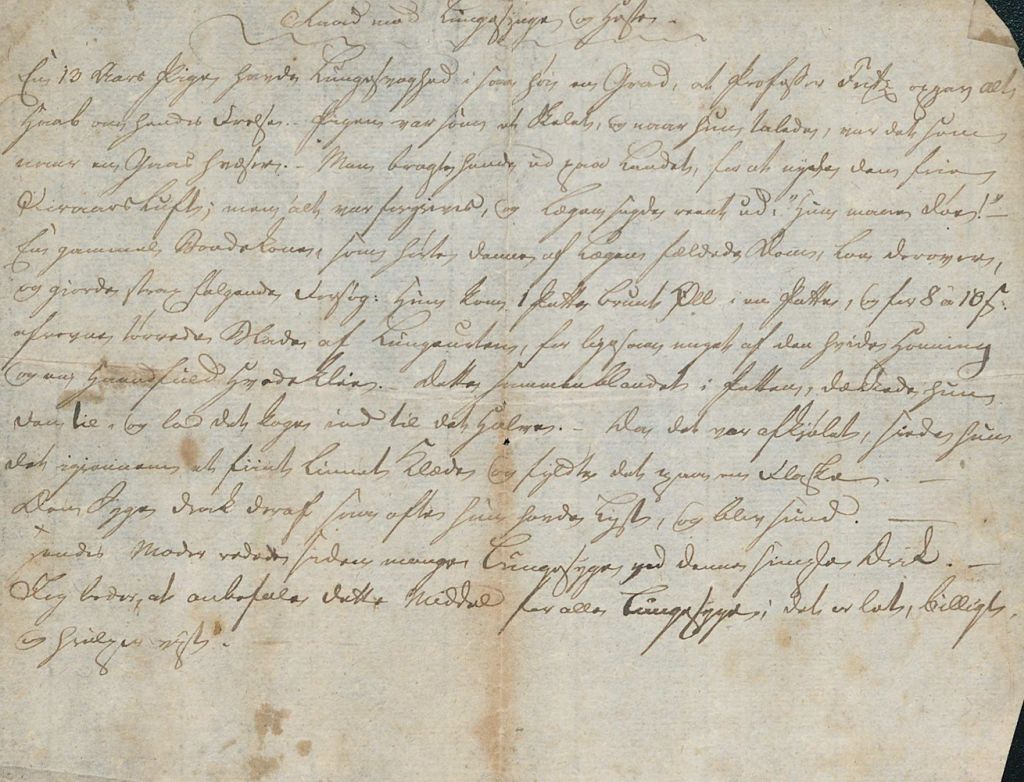 Raad mod Lungesyge og Hoste.
En 13 Aars Pige havde Lungesvaghed i saa høi en Grad, at Professer Fritz opgav alt
Haab om hendes Frelse. - Pigen var som et Skelet, og naar hun talede, var det som
naar en Gaas hvæser. - Man bragte hende ud paa Landet, for at nyde den frie
Foraars Luft; men alt var forgieves, og Lægen sagde reent ud: "Hun maae døe!" -
En gammel Bondekone, som hørte denne af Lægen fældede Dom, loe derover,
og giorde strax følgende Forsøg: Hun kom 1 Potte brunt Øll i en Potte, og for 8 a 10 ſ:
afrevne tørrede Blade af Lungeurten, for ligesaa meget af den hvide Honning
og en Haandfuld Hvedeklie. - Dette sammenblandet i Potten, dækkede hun
den til, og lod det koge ind til det Halve. - Da det var afkjølet, siede hun
det igiennem et fiint Linnet Klæde og fyldte det paa en Flaske. -
Den Syge drak deraf saa ofte hun havde Lyst, og blev sund. -
Hendes Moder redede siden mange Lungesyge ved denne simple Drik. -
Jeg beder, at anbefale dette Middel for alle Lungesyge; det er let, billigt,
og hielper vist. -